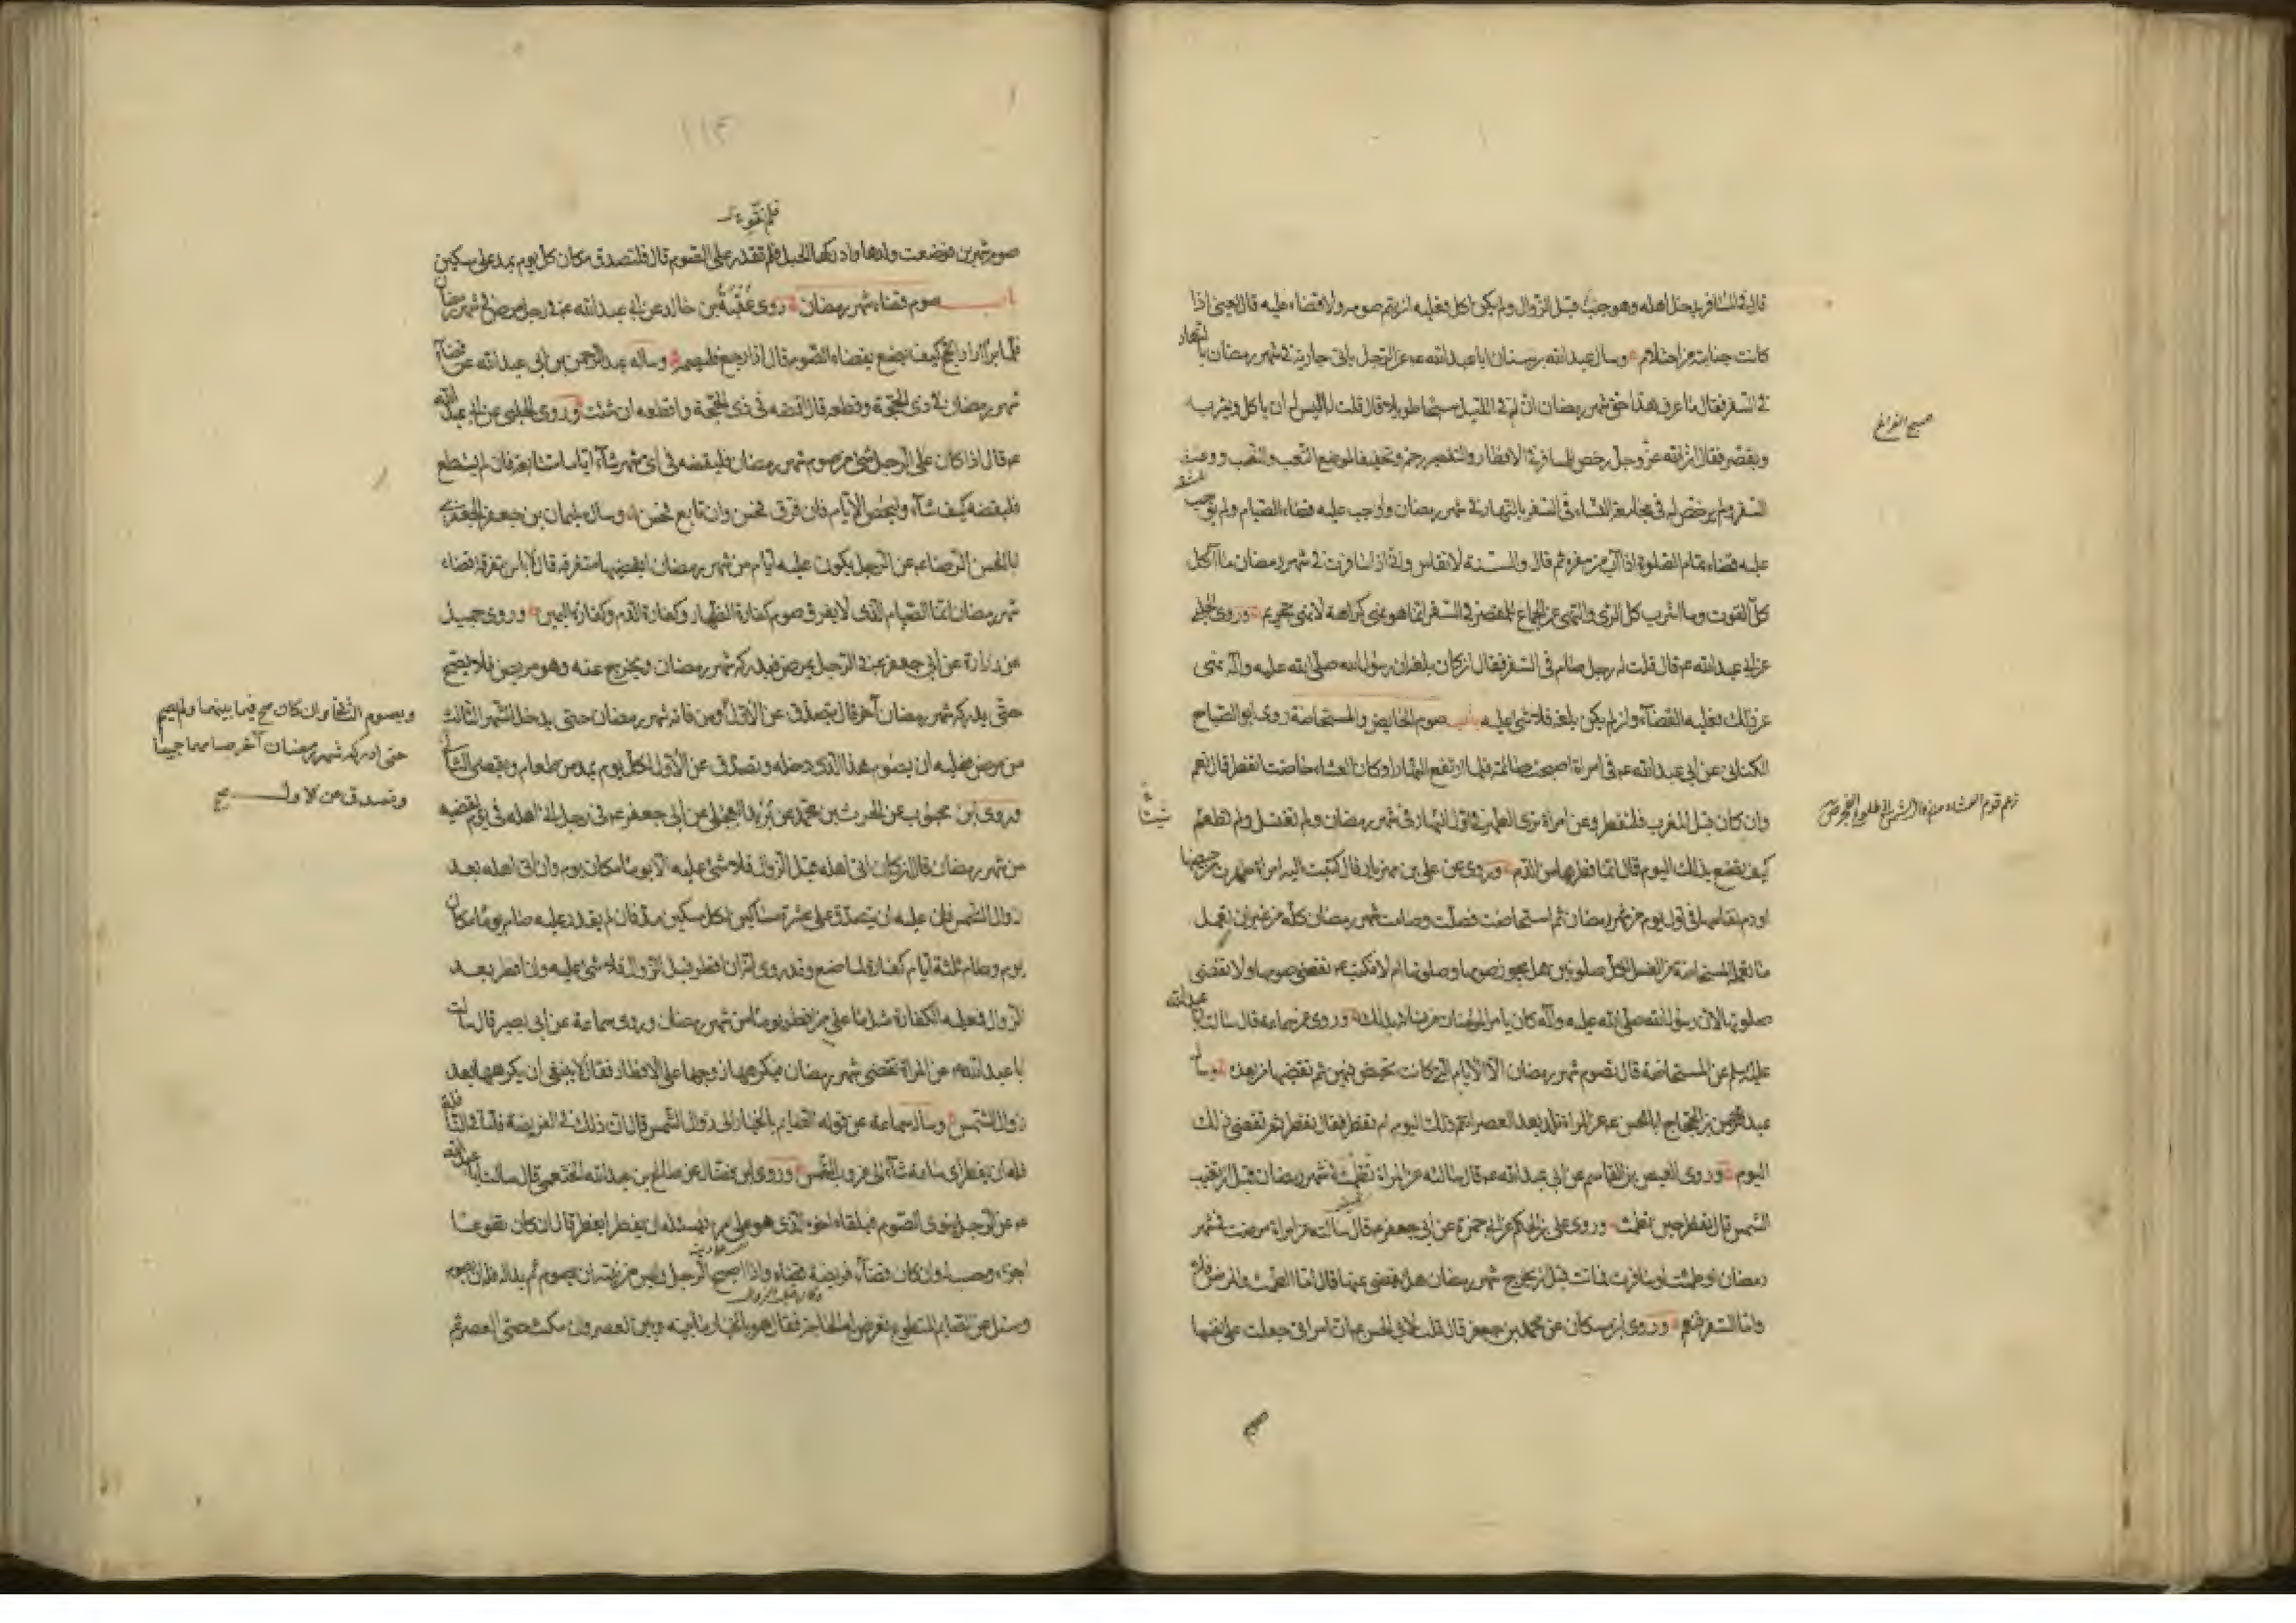 قال فی المسافر یدخل اهله وهو جنب قبل الزوال ولم یکن اکل فعلیه ان یتم صومه ولا قضاء علیه قال یعنی اذا
کانت جنابته من احتلام وسال عبد الله بن سنان ابا عبد الله عه عن الرجل یاتی جاریته فی شهر رمضان بالنهار
فی السفر فقال ما عرف هذا حق شهر رمضان ان له فی اللیل سبحا طویلا قال قلت له الیس له ان یاکل ویشرب
ویقصر فقال ان الله عز وجل رخص للمسافر فی الافطار والتقصیر رحمة وتخفیفا لموضع التعب والنصب ووعث
السفر ولم یرخص له فی مجامعة النساء فی السفر بالنهار فی شهر رمضان واوجب علیه قضاء الصیام ولم یوجب
علیه قضاء تمام الصلوة اذا آب من سفره ثم قال والسنة لا تقاس وانی اذا سافرت فی شهر رمضان ما آکل
کل القوت وما اشرب کل الری والنهی عن الجماع للمقصر فی السفر انما هو نهی کراهة لا نهی تحریم وروی الحلبی
عن ابی عبد الله عه قال قلت له رجل صام فی السفر فقال ان کان بلغه ان رسول الله صلی الله علیه وآله نهی
عن ذلک فعلیه القضاء وان لم یکن بلغه فلا شئ علیه باب صوم الحایض والمستحاضة روی ابو الصباح
الکنانی عن ابی عبد الله عه فی امراة اصبحت صائمة فلما ارتفع النهار او کان العشاء حاضت اتفطر قال نعم
وان کان قبل المغرب فلتفطر وعن امراة تری الطهر فی اول النهار فی شهر رمضان ولم تغتسل ولم تطعم
کیف تصنع بذلک الیوم قال انما فطرها من الدم وروی عن علی بن مهزیار قال کتبت الیه امراة طهرت من حیضها
او دم نفاسها فی اول یوم من شهر رمضان ثم استحاضت فصلت وصامت شهر رمضان کله من غیر ان تعمل
ما تعمله المستحاضة من الغسل لکل صلوتین هل یجوز صومها وصلوتها ام لا فکتب عه تقضی صومها ولا تقضی
صلوتها لان رسول الله صلی الله علیه وآله کان یامر المؤمنات من نسائه بذلک وروی عن سماعة قال سالت ابا عبد الله
علیه السلم عن المستحاضة قال تصوم شهر رمضان الا الایام التی کانت تحیض فیهن ثم تقضیها من بعد وسال
عبد الرحمن بن الحجاج ابا الحسن عه عن المراة تلد بعد العصر اتتم ذلک الیوم ام تفطر فقال تفطر ثم تقضی ذلک
الیوم وروی العیص بن القاسم عن ابی عبد الله عه قال سالته عن المراة تطمث فی شهر رمضان قبل ان تغیب
الشمس قال تفطر حین تطمث وروی علی بن الحکم عن ابی حمزة عن ابی جعفر عه قال سالته عن امراة مرضت فی شهر
رمضان او طمثت او سافرت فماتت قبل ان یخرج شهر رمضان هل یقضی عنها قال اما الطمث والمرض فلا
واما السفر فنعم وروی ابن مسکان عن محمد بن جعفر قال قلت لابی الحسن عه ان امراتی جعلت علی نفسها
فلم تقو
صوم شهرین فوضعت ولدها وادرکها الحبل فلم تقدر علی الصوم قال فلتصدق مکان کل یوم بمد علی مسکین
باب صوم قضاء شهر رمضان روی عقبة بن خالد عن ابی عبد الله عه فی رجل مرض فی شهر رمضان
فلما برأ اراد الحج کیف یصنع بقضاء الصوم قال اذا رجع فلیصمه وساله عبد الرحمن بن ابی عبد الله عن قضاء
شهر رمضان فی ذی الحجة وقطعه قال اقضه فی ذی الحجة واقطعه ان شئت وروی الحلبی عن ابی عبد الله
عه قال اذا کان علی الرجل شئ من صوم شهر رمضان فلیقضه فی ای شهر شاء ایاما متتابعة فان لم یستطع
فلیقضه کیف شاء ولیحص الایام فان فرق فحسن وان تابع فحسن وسال سلیمان بن جعفر الجعفری
ابا الحسن الرضا عه عن الرجل یکون علیه ایام من شهر رمضان ایقضیها متفرقة قال لا باس بتفرقة قضاء
شهر رمضان انما الصیام الذی لا یفرق صوم کفارة الظهار وکفارة الدم وکفارة الیمین وروی جمیل
عن زرارة عن ابی جعفر عه فی الرجل یمرض فیدرکه شهر رمضان ویخرج عنه وهو مریض فلا یصح
حتی یدرکه شهر رمضان آخر قال یتصدق عن الاول ومن فاته شهر رمضان حتی یدخل الشهر الثالث
من مرض فعلیه ان یصوم هذا الذی دخله وتصدق عن الاول لکل یوم بمد من طعام ویقضی الثانی
وروی ابن محبوب عن الحرث بن محمد عن برید العجلی عن ابی جعفر عه فی رجل اتی اهله فی یوم یقضیه
من شهر رمضان قال ان کان اتی اهله قبل الزوال فلا شئ علیه الا یوما مکان یوم وان اتی اهله بعد
زوال الشمس فان علیه ان یتصدق علی عشرة مساکین لکل مسکین مد فان لم یقدر علیه صام یوما مکان
یوم وصام ثلثة ایام کفارة لما صنع وقد روی انه ان افطر قبل الزوال فلا شئ علیه وان افطر بعد
الزوال فعلیه الکفارة مثل ما علی من افطر یوما من شهر رمضان وروی سماعة عن ابی بصیر قال سالت
ابا عبد الله عه عن المراة تقضی شهر رمضان فیکرهها زوجها علی الافطار فقال لا ینبغی ان یکرهها بعد
زوال الشمس وساله سماعة عن قوله الصایم بالخیار الی زوال الشمس قال ان ذلک فی الفریضة فاما فی النافلة
فله ان یفطر ای ساعة شاء الی غروب الشمس وروی ابن فضال عن صالح بن عبد الله الخثعمی قال سالت ابا عبد الله
عه عن الرجل ینوی الصوم فیلقاه اخوه الذی هو علی امره فیسئله ان یفطر ایفطر قال ان کان تطوعا
اجزءه وحسب له وان کان قضاء فریضة قضاه واذا اصبح الرجل ولیس من نیته ان یصوم ثم بدا له فله ان یصوم
وسئل عن الصایم المتطوع تعرض له الحاجة فقال هو بالخیار ما بینه وبین العصر وان مکث حتی العصر ثم
ویصوم الثانی وان کان صح فیما بینهما ولم یصم
حتی ادرکه شهر رمضان آخر صامهما جمیعا
وتصدق عن الاول